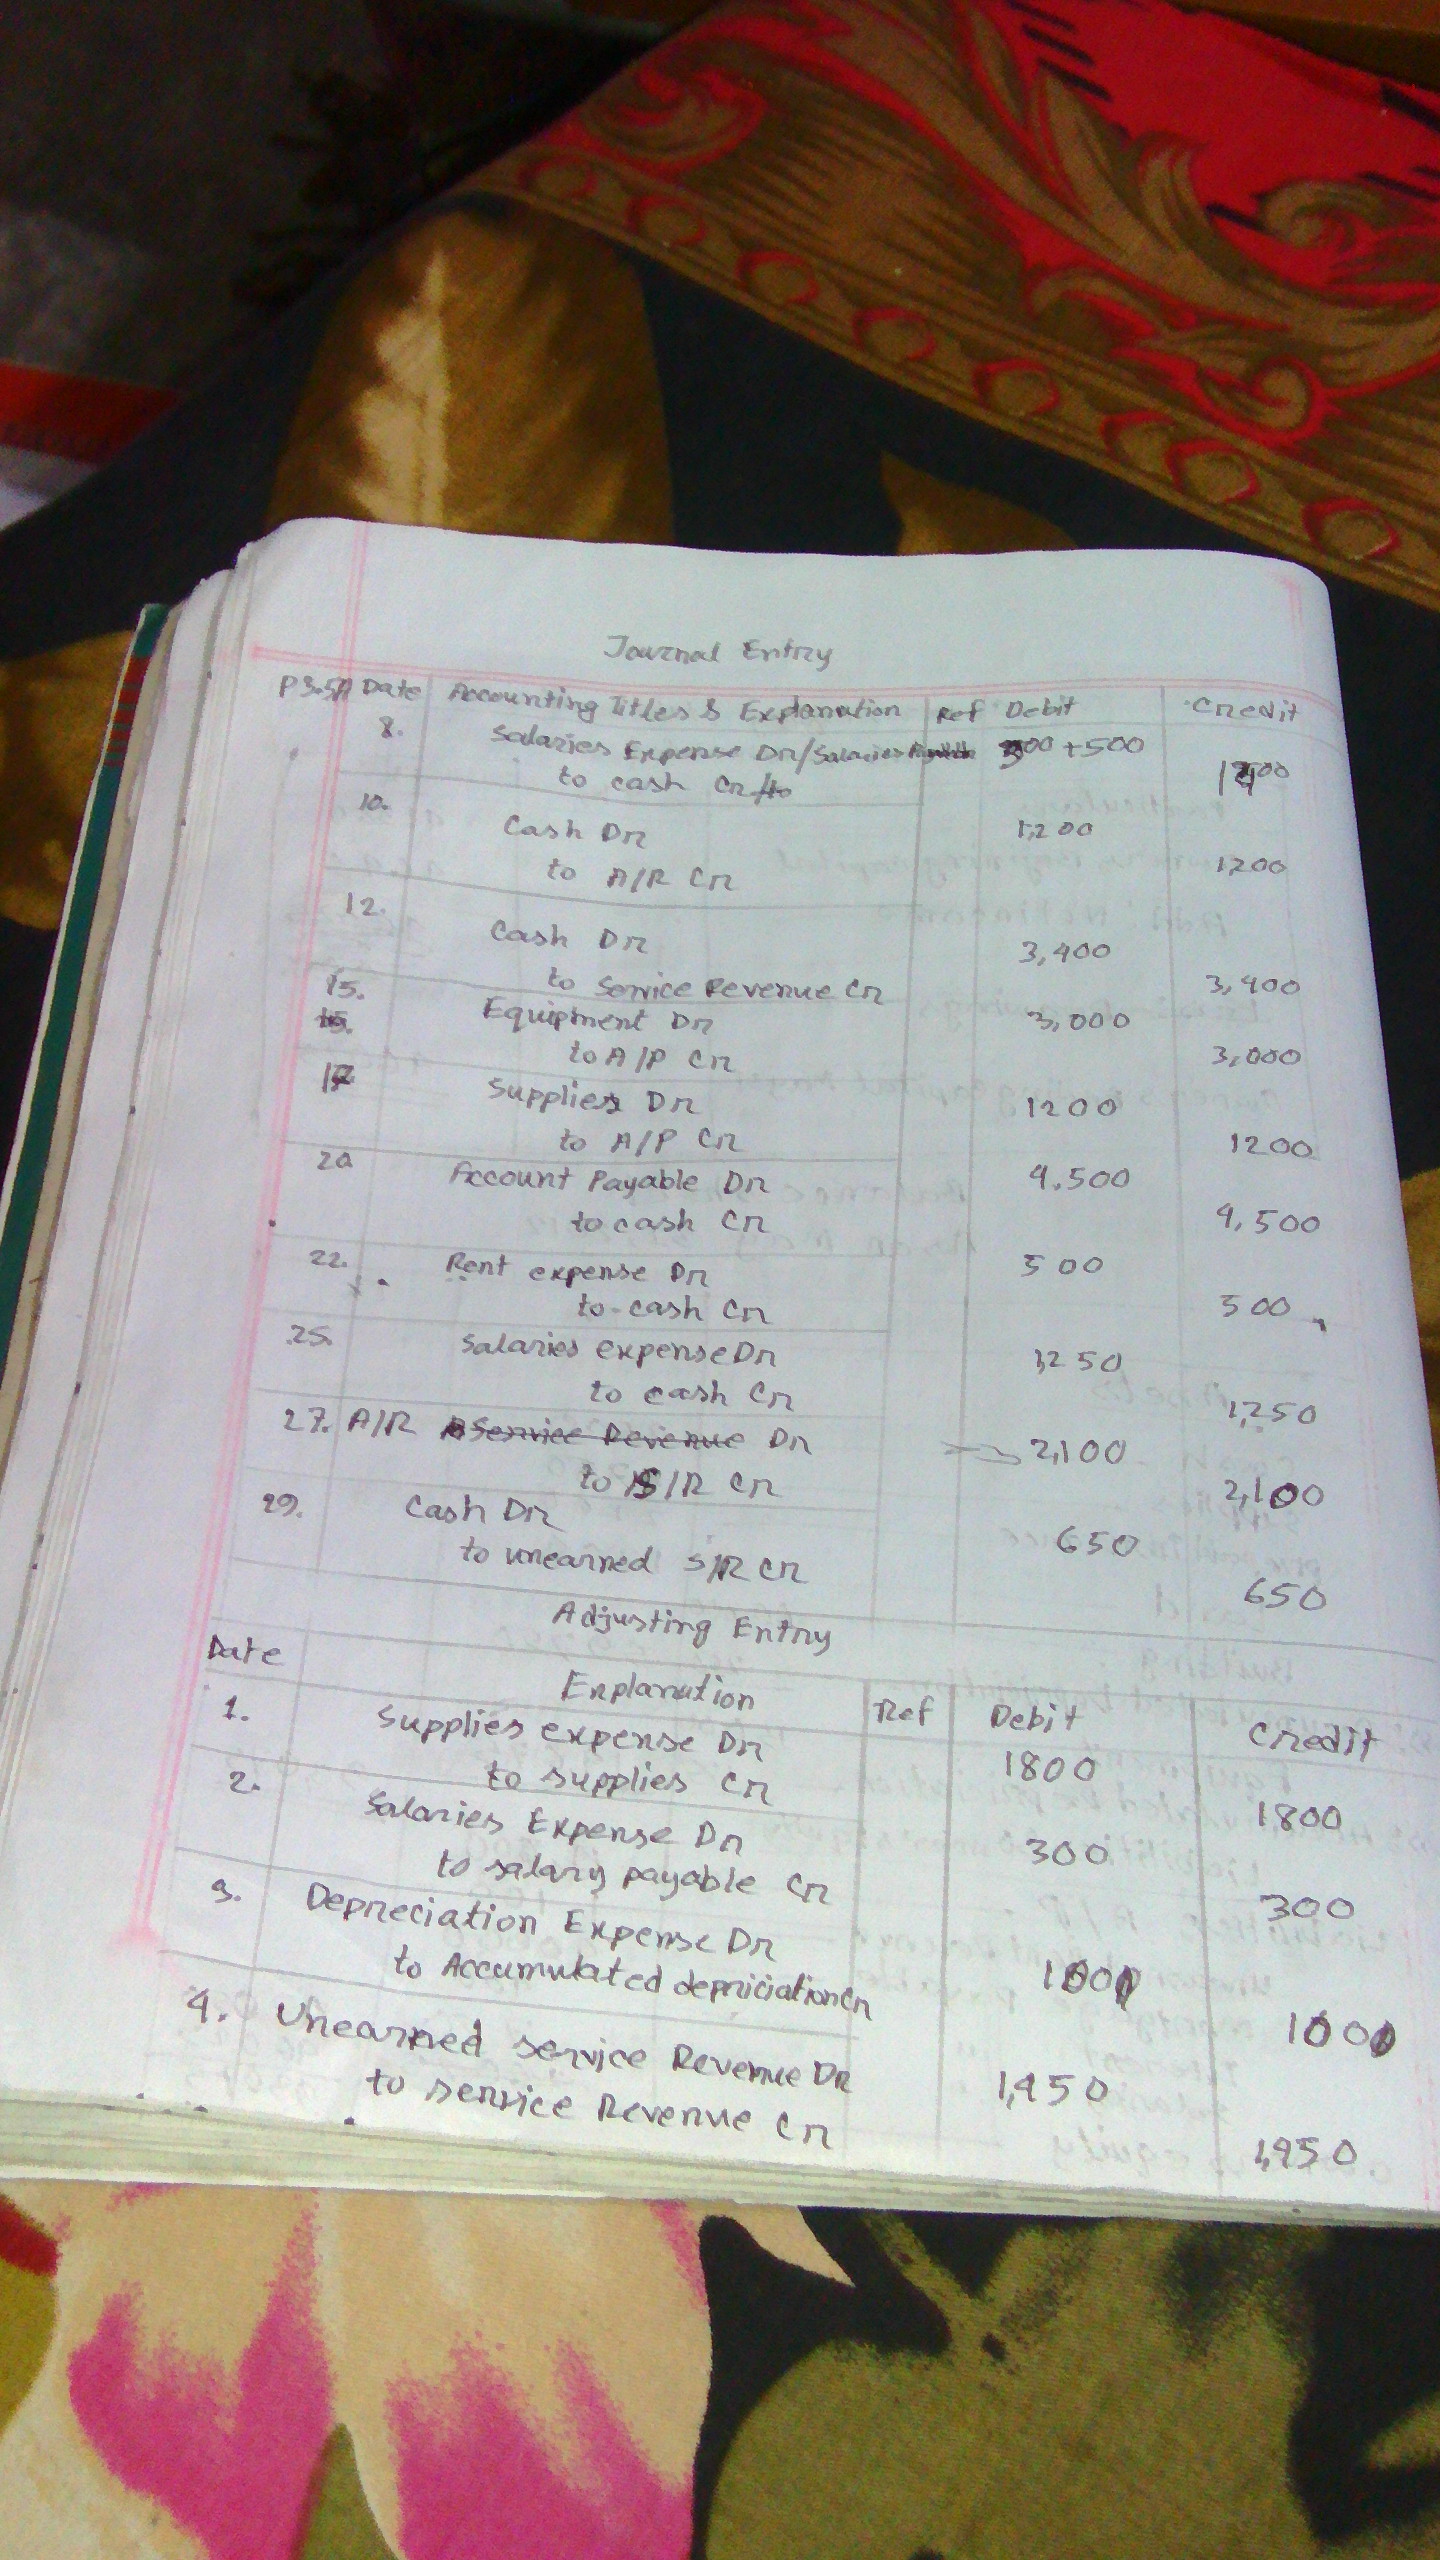 Journal Entry
P3.5A Date Accounting Titles & Explanation Ref Debit Credit
8. Salaries Expense Dr/Salaries 900 + 500
to cash Cr
10. Cash Dr 1,200
to A/R Cr 1200
12. Cash Dr 3,400
to Service Revenue Cr 3,400
15. Equipment Dr 3,000
to A/P Cr 3,000
17 Supplies Dr 1200
to A/P Cr 1200
20 Account Payable Dr 4,500
to cash Cr 4,500
22. Rent expense Dr 500
to cash Cr 500
25. Salaries expense Dr 1250
to cash Cr 1,250
27. A/R Service Revenue Dr 2,100
to S/R Cr 2,100
29. Cash Dr 650
to unearned S/R Cr 650
Adjusting Entry
Date Explanation Ref Debit Credit
1. Supplies expense Dr 1800
to supplies Cr 1800
2. Salaries Expense Dr 300
to salary payable Cr 300
3. Depreciation Expense Dr
to Accumulated depriciation Cr
4. Unearned service Revenue Dr 1,450
to service Revenue Cr 1,450